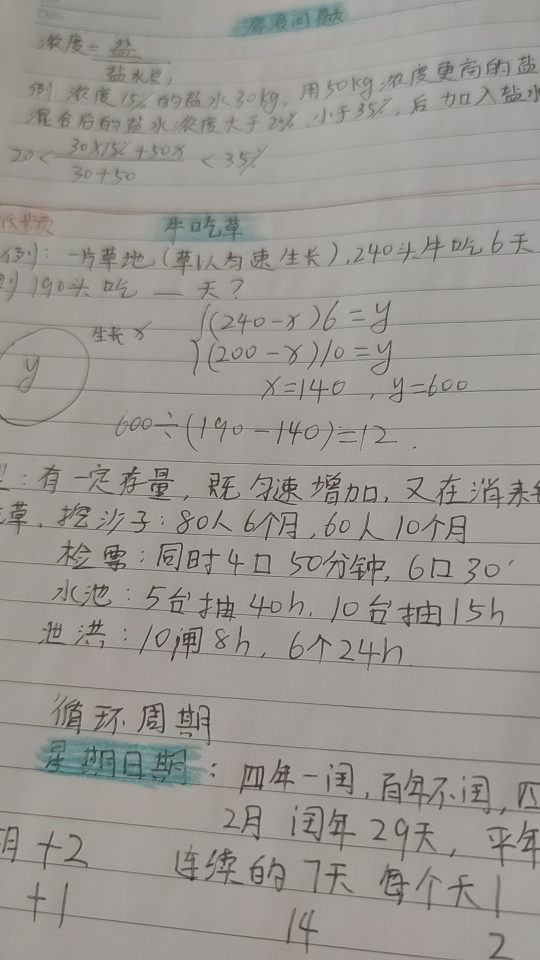 溶液问题
浓度=盐/盐水总
例 浓度15%的盐水30kg,用50kg浓度更高的盐
混合后的盐水浓度大于20%,小于35%,后加入盐水
20< 30×15%+50x / 30+50 <35%
牛吃草
例:一片草地(草以匀速生长),240头牛吃6天
190头吃 — 天?
生长x
(240-x)6=y
y
(200-x)10=y
x=140,y=600
600÷(190-140)=12.
:有一定存量,既匀速增加,又在消耗
草,挖沙子:80人6个月,60人10个月
检票:同时4口50分钟,6口30'
水池:5台抽40h,10台抽15h
泄洪:10闸8h,6个24h
循环周期
星期日期:四年一闰,百年不闰,四
2月 闰年29天,平年
月+2 连续的7天 每个天1
+1 14 2